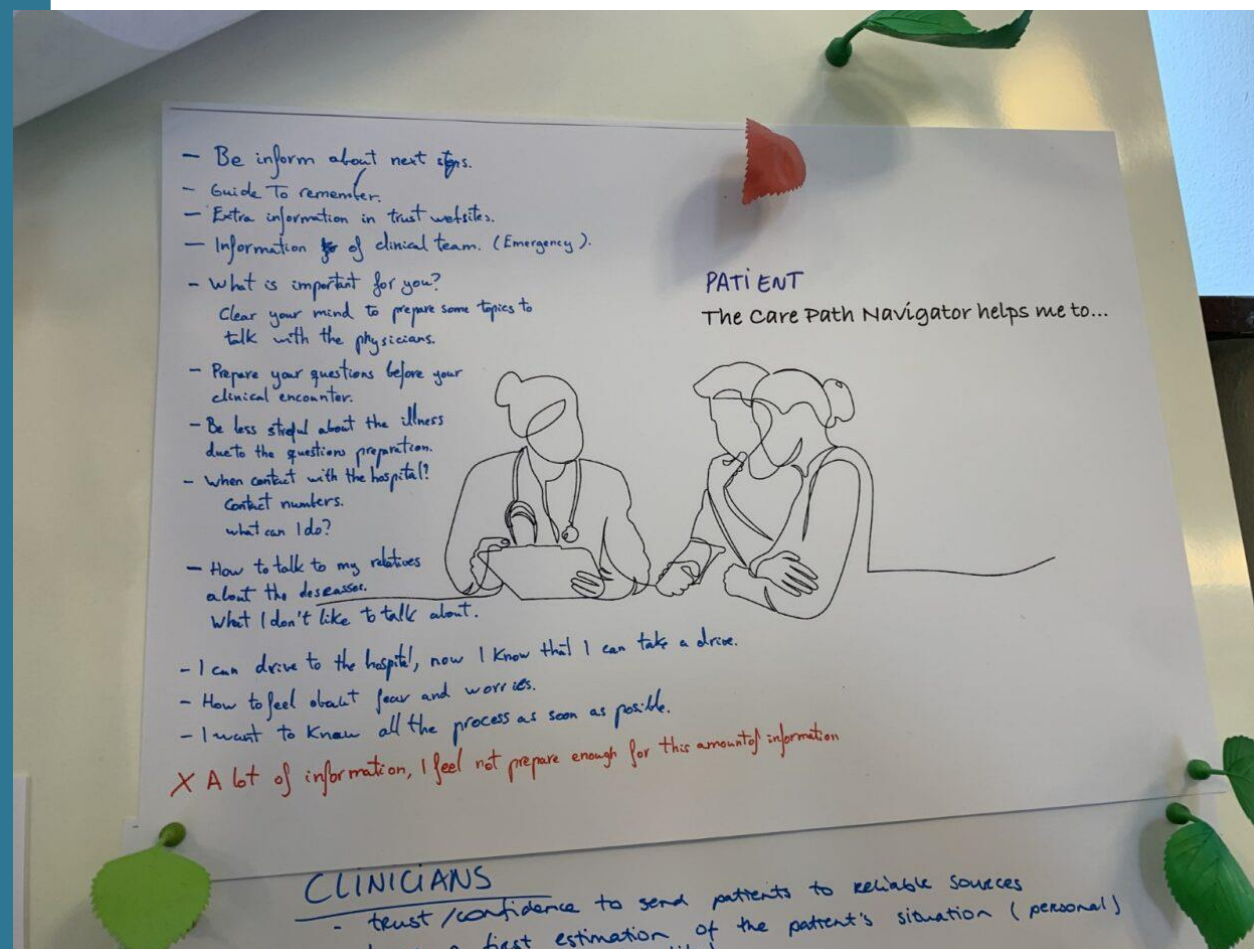 - Be inform about next steps.
- Guide To remember.
- Extra information in trust websites.
- Information of clinical team. (Emergency).
- What is important for you?
Clear your mind to prepare some topics to
talk with the physicians.
- Prepare your questions before your
clinical encounter.
- Be less streful about the illness
due to the questions preparation.
- When contact with the hospital?
Contact numbers.
what can I do?
- How to talk to my relatives
about the deseasses.
What I don't like to talk about.
- I can drive to the hospital, now I know that I can take a drive.
- How to feel about fear and worries.
- I want to know all the process as soon as posible.
X A lot of information, I feel not prepare enough for this amount of information
PATiENT
The Care Path Navigator helps me to...
CLiNiCiANS
- trust / confidence to send patients to reliable sources
first estimation of the patient's situation (personal)